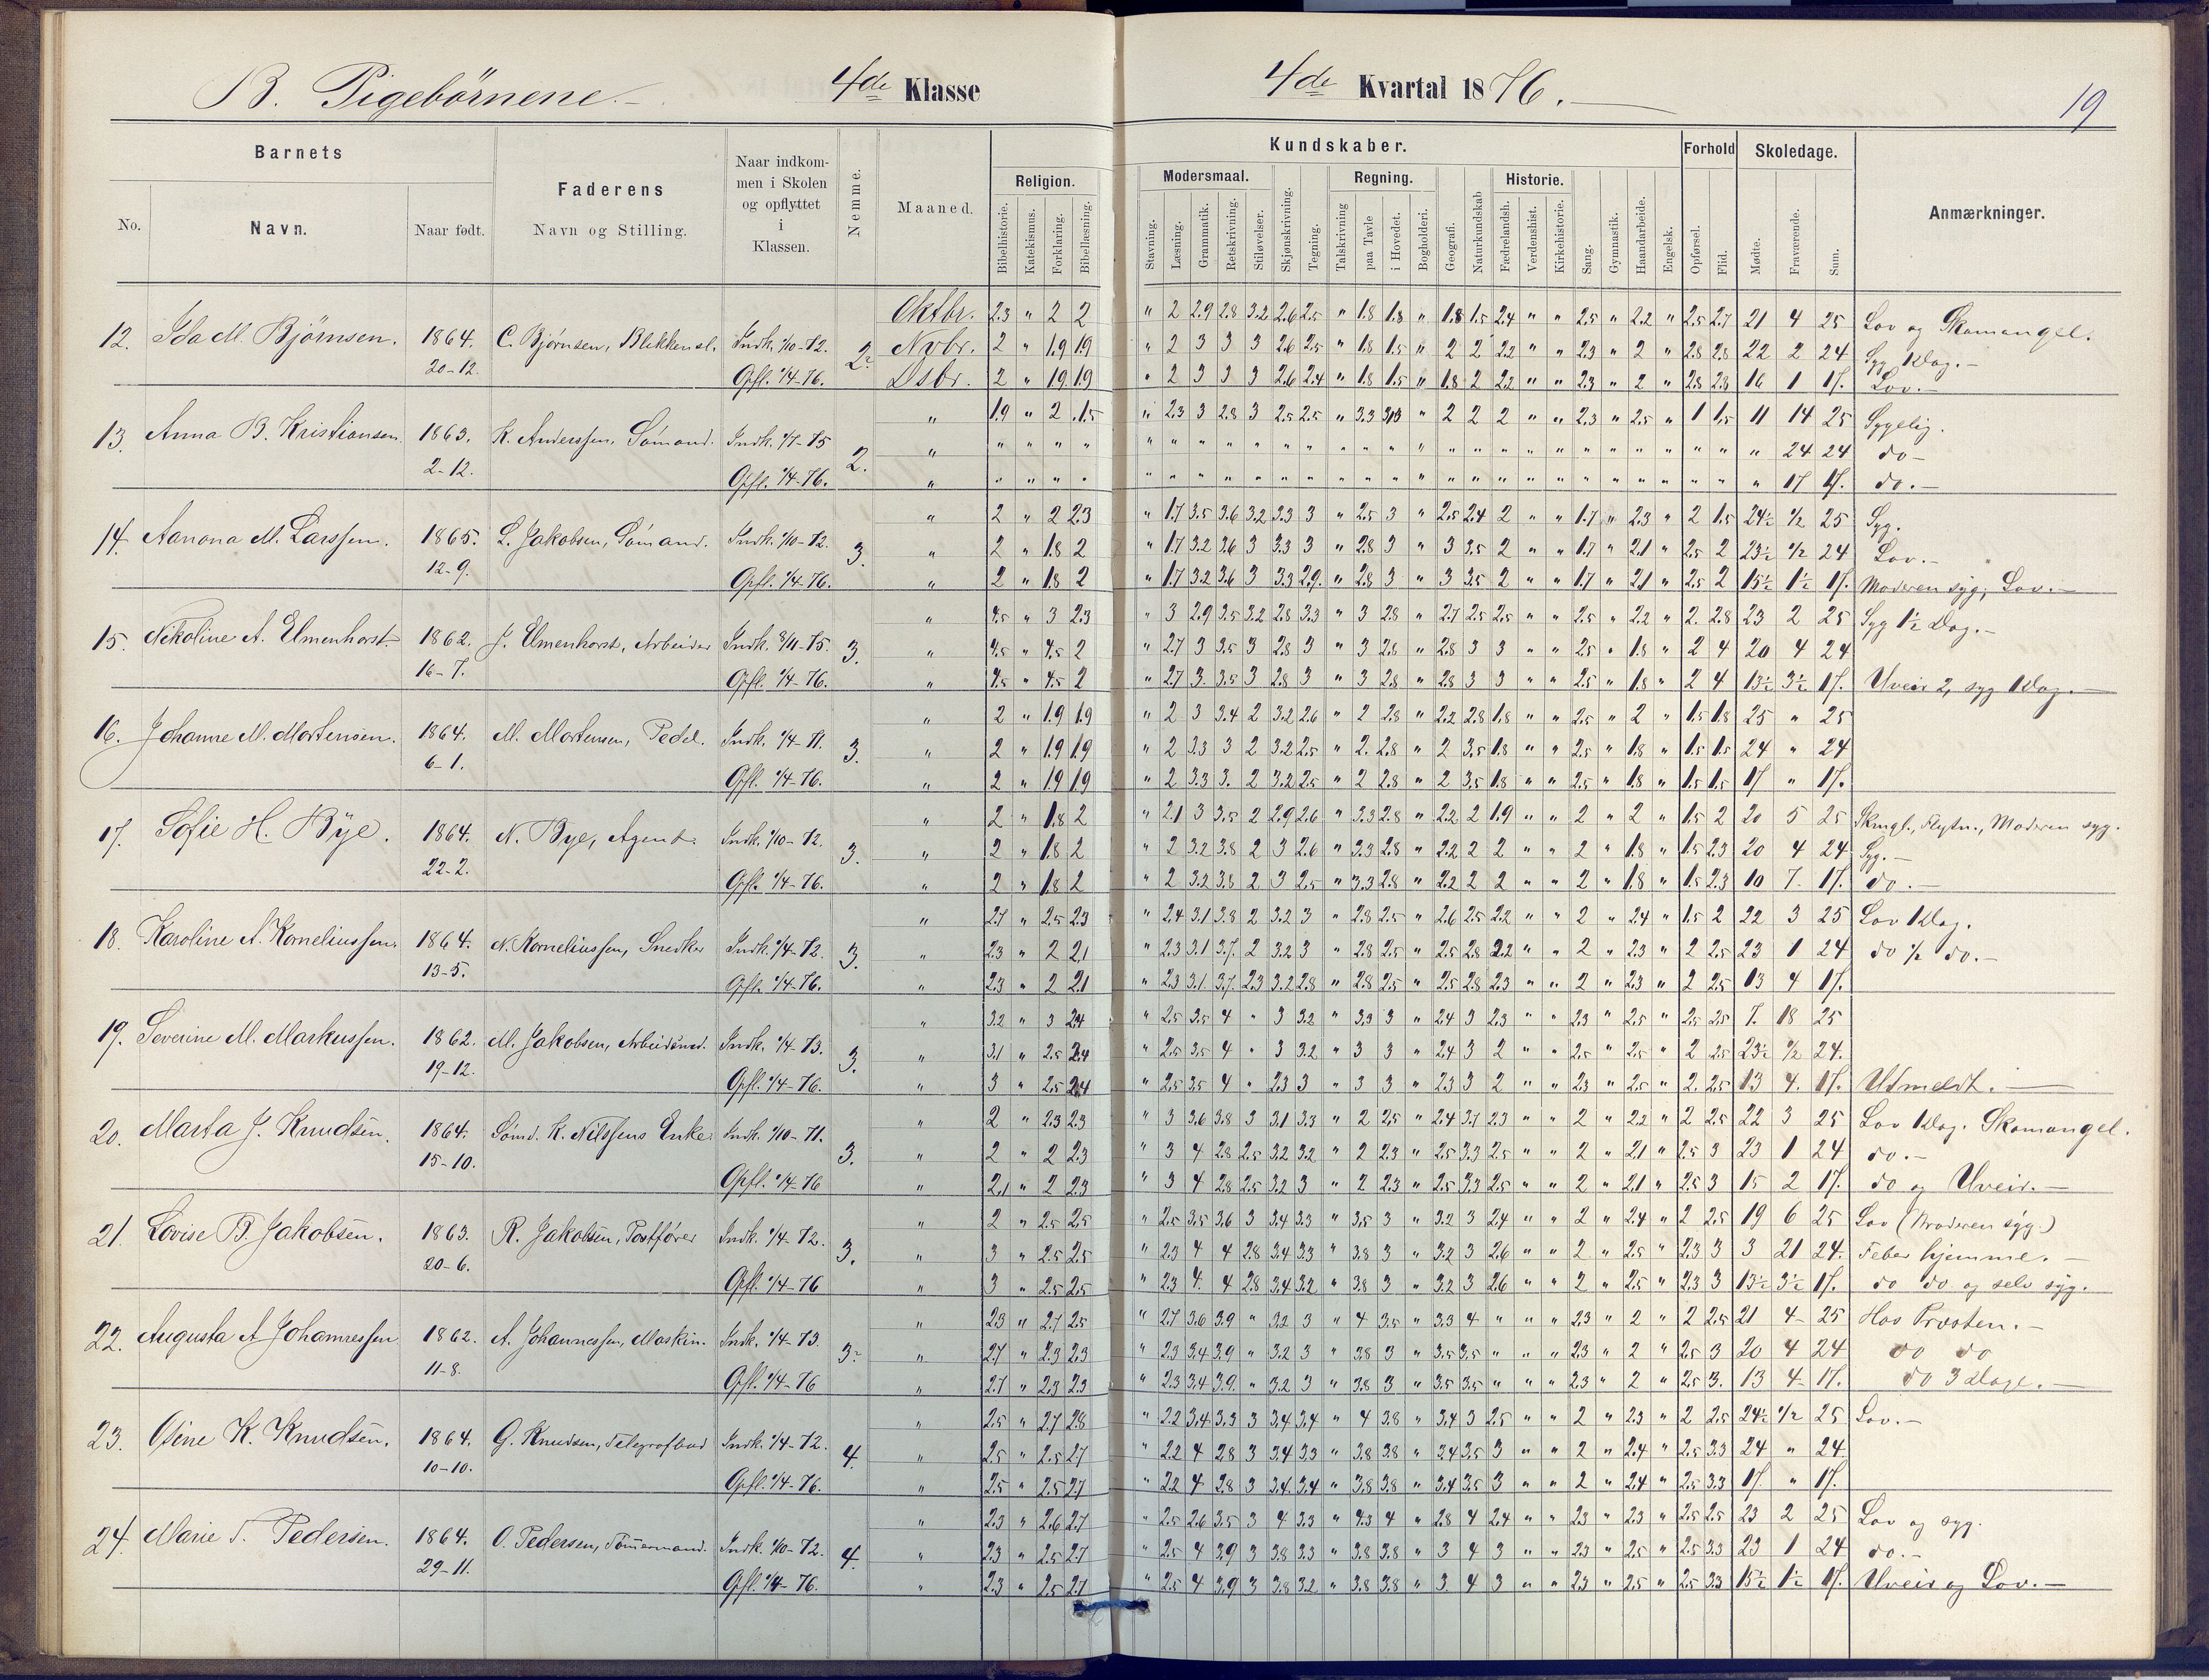 B. Pigebørnene. 4de Klasse
4de Kvartal 1876.
19
Barnets
Kundskaber.
Forhold
Skoledage.
No.
Navn.
Naar født.
Faderens
Navn og Stilling.
Naar indkom-
men i Skolen
og opflyttet
i
Klassen.
Nemme.
Maaned.
Religion.
Modersmaal.
Regning.
Historie.
Anmærkninger.
Bibelhistorie.
Katekismus.
Forklaring.
Bibellæsning.
Stavning.
Læsning.
Grammatik.
Retskrivning.
Stiløvelser.
Skjønskrivning.
Tegning.
Talskrivning
paa Tavle
i Hovedet.
Bogholderi.
Geografi.
Naturkundskab
Fædrelandsh.
Verdenshist.
Kirkehistorie.
Sang.
Gymnastik.
Haandarbeide.
Engelsk.
Opførsel.
Flid.
Mødte.
Fraværende.
Sum.
12. Ida M. Bjørnsen. 1864. 20-12. C. Bjørnsen, Blikkensl. Indk. 1/10-72. Opfl. 1/4-76.
Oktbr. 2.3 " 2 2 " 2 2.9 2.8 3.2 2.6 2.5 " 1.8 1.8 " 1.8 1.5 2.4 " " 2.5 " 2.2 " 2.5 2.7 21 4 25 Lov og Skomangel.
Nvbr. 2 " 1.9 1.9 " 2 3 3 3 2.6 2.5 " 1.8 1.5 " 2 2 2.2 " " 2.3 " 2 " 2.8 2.8 22 2 24 Syg 1 Dag.-
Dsbr. 2 " 1.9 1.9 " 2 3 3 3 2.6 2.4 " 1.8 1.5 " 1.8 2 2.2 " " 2.3 " 2 " 2.8 2.8 16 1 17. Lov.-
13. Anna B. Kristiansen. 1863. 2-12. K. Anderssen, Sømand. Indk. 1/7-75 Opfl. 1/4-76. 2.
" 1.9 " 2 1.5 " 2.3 3 2.8 3 2.5 2.5 " 3.3 " 2 2 2 " " 2.3 " 2.5 " 1 1.5 11 14 25 Sygelig.
" 24 24 do-
" 17 17. do.-
14. Aanona M. Larssen. 1865. 12-9. L. Jakobsen, Sømand. Indk. 1/10-72. Opfl. 1/4-76. 3.
" 2 " 2 2.3 " 1.7 3.5 3.6 3.2 3.3 3 " 2.5 3 " 2.5 2.4 2 " " 1.7 " 2.3 " 2 1.5 24½ ½ 25 Syg.
" 2 " 1.8 2 " 1.7 3.2 3.6 3 3.3 3 " 2.8 3 " 3 3.5 2 " " 1.7 " 2.1 " 2.5 2 23½ ½ 24 Lov.-
" 2 " 1.8 2 " 1.7 3.2 3.6 3 3.3 2.9. " 2.8 3 " 3 3.5 2 " " 1.7 " 2.1 " 2.5 2 15½ 1½ 17. Moderen syg, Lov.-
15. Nikoline A. Elmenhorst. 1862. 16-7. J. Elmenhorst, Arbeider Indk. 8/11-75. Opfl. 1/4-76. 3.
" 4.5 " 3 2.3 " 3 2.9 3.5 3.2 2.8 3.3 " 3 2.8 " 2.7 2.5 2.5 " " 2.5 " 2.2 " 2. 2.8 23 2 25 Syg 1½ Dag.-
" 4.5 " 4.5 2 " 2.7 3 3.5 3 2.8 3 " 3 2.8 " 2.8 3 3 " " 2.5 " 1.8 " 2 4 20 4 24
" 4.5 " 4.5 2 " 2.7 3. 3.5 3 2.8 3 " 3 2.8 " 2.8 3 3 " " 2.5 " 1.8 " 2 4 13½ 3½ 17. Uveir 2, syg 1 Dag.-
16. Johanne M. Mortensen. 1864. 6-1. M. Mortensen, Pedel. Indk. 1/4-71. Opfl. 1/4-76. 3.
" 2 " 1.9 1.9 " 2 3 3.4 2 3.2 2.6 " 2 2.8 " 2.2 2.8 1.8 " " 2.5 " 2 " 1.5 1.8 25 " 25
" 2 " 1.9 1.9 " 2 3.3 3 2 3.2 2.5 " 2. 2.8 " 2 3.5 1.8 " " 2.5 " 1.8 " 1.5 1.5 24 " 24
" 2 " 1.9 1.9 " 2 3.3 3. 2 3.2 2.5 " 2 2.8 " 2 3.5 1.8 " " 2.5 " 1.8 " 1.5 1.5 17 " 17.
17. Sofie H. Bye. 1864. 22-2. N. Bye, Agent. Indk. 1/10-72. Opfl. 1/4-76. 3.
" 2 " 1.8 2 " 2.1 3 3.5 2 2.9 2.6 " 3.3 2.8 " 2.2 2 1.9 " " 2 " 2 " 1.5 2 20 5 25 Skmgl., Flytn., Moderen syg.
" 2 " 1.8 2 " 2 3.2 3.8 2 3 2.6 " 3.3 2.8 " 2.2 2 2 " " 2 " 1.8 " 1.5 2.3 20 4 24 Syg.-
" 2 " 1.8 2 " 2 3.2 3.8 2 3 2.5 " 3.3 2.8 " 2.2 2 2 " " 2 " 1.8 " 1.5 2.3 10 7 17. do.-
18. Karoline A. Korneliussen. 1864. 13-5. N. Korneliussen, Snedker Indk. 1/4-72. Opfl. 1/4-76. 3.
" 2.7 " 2.5 2.3 " 2.4 3.1 3.8 2 3.2 3 " 2.8 2.5 " 2.6 2.5 2.2 " " 2 " 2.4 " 1.5 2 22 3 25 Lov 1 Dag.
" 2.3 " 2 2.1 " 2.3 3.1 3.7. 2 3.2 3 " 2.8 2.5 " 2.5 2.8 2.2 " " 2 " 2.3 " 2 2.5 23 1 24 do ½ do.-
" 2.3 " 2 2.1 " 2.3 3.1. 3.7. 2.3 3.2 2.8 " 2.8 2.5 " 2.5 2.8 2.3 " " 2 " 2.3 " 2 2.5 13 4 17.
19. Severine M. Markussen. 1862. 19-12. M. Jakobsen, Arbeidsmd. Indk. 1/4-73. Opfl. 1/4-76. 3.
" 3.2 " 3 2.4 " 2.5 3.5 4 " 3 3.2 " 3.3 3 " 2.4 3 2.3 " " 2.3 " 2.5 " 2.5 2.5 7. 18 25
" 3.1 " 2.5 2.4 " 2.5 3.5 4 " 3 3.2 " 3 3 " 2.4 3 2 " " 2.5 " 2.5 " 2 2.5 23½ ½ 24.
" 3 " 2.5 2.4 " 2.5 3.5 4 " 2.3 3 " 3 3 " 2.3 3 2 " " 2.3 " 2.5 " 2. 2.5 13 4. 17. Utmeldt.-
20. Marta J. Knudsen. 1864. 15-10. Sømd. K. Nilssens Enke. Indk. 1/10-71. Opfl. 1/4-76 3.
" 2 " 2.3 2.3 " 3 3.6 3.8 3 3.1 3.3 " 2 2.5 " 2.4 3.7 2.3 " " 2 " 2.2 " 2 2.5 22 3 25 Lov 1 Dag. Skomangel.
" 2 " 2 2.3 " 3 4 2.8 2.5 3.2 3.2 " 2 2.3 " 2.5 3.3 2.5 " " 2 " 2.1 " 2.5 3 23 1 24 do.-
" 2.1 " 2 2.3 " 3 4 2.8 2.5 3.2 3 " 2 2.3 " 2.5 3.3 2.5 " " 2 " 2.1 " 2.5 3 15 2 17. do og Uveir.-
21. Lovise B. Jakobsen. 1863. 20-6. R. Jakobsen, Postfører Indk. 1/4-72. Opfl. 1/4-76 3.
" 2 " 2.5 2.5 " 2.5 3.5 3.6 3 3.4 3.3 " 3.5 3 " 3.2 3 2.4 " " 2 " 2.4 " 2 2.5 19 6 25 Lov (Moderen syg.)
" 3 " 2.5 2.5 " 2.3 4 4 2.8 3.4 3.3 " 3.8 3 " 3.2 3 2.6 " " 2 " 2.5 " 2.3 3 3 21 24. Feber hjemme.-
" 3 " 2.5 2.5 " 2.3 4. 4 2.8 3.4 3.2 " 3.8 3 " 3.2 3 2.6 " " 2 " 2.5 " 2.3 3 13½ 3½ 17. do do og selv syg.
22. Augusta A Johannessen 1862. 11-8. A. Johannessen, Maskin. Indk. 1/4-73. Opfl. 1/4-76
" 2.3 " 2.7 2.5 " 2.7 3.6 3.9 " 3.2 3 " 4 3.5 " 3.3 4 " " " 2.3 " 2 " 2 2.5 21 4 25 Hos Provsten.-
" 2.7 " 2.3 2.3 " 2.3 3.4 3.9 " 3.2 3 " 3.8 3 " 3.5 3.5 " " " 2.3 " 2 " 2.5 3 20 4 24 do do
" 2.7 " 2.3 2.3 " 2.3 3.4 3.9. " 3.2 3 " 3.8 3 " 3.5 3.5 " " " 2.3 " 2 " 2.5 3. 13 4 17. do 3 Dage.-
23. Osine K. Knudsen. 1864. 10-10. G. Knudsen, Telegrafbud Indk. 1/4-72. Opfl. 1/4-76. 4.
" 2.5 " 2.7 2.8 " 2.2 3.4 3.3 3 3.4 3.4 " 4 3.8 " 3.4 3 2.5 " " 2 " 2.3 " 2 2.5 24½ ½ 25 Lov.-
" 2.5 " 2.5 2.7 " 2.2 4 2.8 3 3.4 3.3 " 3.8 3.8 " 3.4 3.5 3 " " 2 " 2.4 " 2.5 3.3 24 " 24
" 2.5 " 2.5 2.7 " 2.2 4 2.8 3 3.4 3.4 " 3.8 3.8 " 3.4 3.5 3 " " 2 " 2.4 " 2.5 3.3 17. " 17.
24. Marie T. Pedersen. 1864. 29-11. O. Pedersen, Tømermand. Indk. 1/10-72. Opfl. 1/4-76. 4.
" 2.3 " 2.6 2.7 " 2.5 2.6 3.5 3 4 3.3 " 4.3 4 " 2.8 4 2.4 " " 2.3 " 2.3 " 2.5 2.5 23 2 25 Lov og syg.
" 2.3 " 2.5 2.7 " 2.5 4 3.9 3 3.8 3.3 " 3.8 3.8 " 3 4 3 " " 2.3 " 2.5 " 2.5 3.3 23 1 24 do.-
" 2.3 " 2.5 2.7 " 2.5 4 3.9 3 3.8 3.2 " 3.8 3.8 " 3. 4 3 " " 2.3 " 2.5 " 2.5 3.3 15½ 1½ 17. Uveir og Lov.-